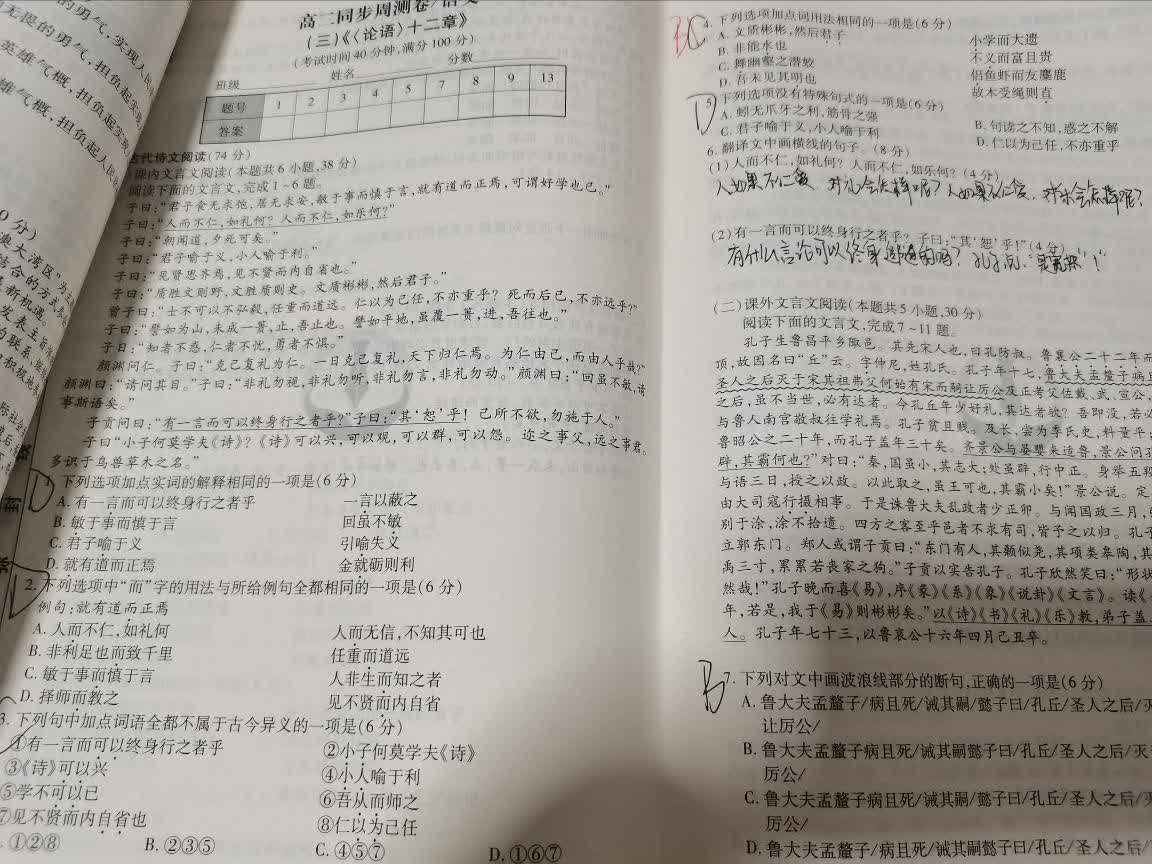 的勇气,实现人
无畏的勇气,担负起实现
英雄气概,担负起实
雄气概,担负起人民
0分)
澳大湾区”为主
结合的方式
新机遇。
发表主
的联系
高二同步周测卷/语文
(三)《〈论语〉十二章》
(考试时间40分钟,满分100分)
班级 姓名 分数
题号 1 2 3 4 5 7 8 9 13
答案
古代诗文阅读(74分)
课内文言文阅读(本题共6小题,38分)
阅读下面的文言文,完成1~6题。
子曰:“君子食无求饱,居无求安,敏于事而慎于言,就有道而正焉,可谓好学也已。”
子曰:“人而不仁,如礼何?人而不仁,如乐何?”
子曰:“朝闻道,夕死可矣。”
子曰:“君子喻于义,小人喻于利。”
子曰:“见贤思齐焉,见不贤而内自省也。”
子曰:“质胜文则野,文胜质则史。文质彬彬,然后君子。”
曾子曰:“士不可以不弘毅,任重而道远。仁以为己任,不亦重乎?死而后已,不亦远乎?”
子曰:“譬如为山,未成一篑,止,吾止也。譬如平地,虽覆一篑,进,吾往也。”
子曰:“知者不惑,仁者不忧,勇者不惧。”
颜渊问仁。子曰:“克己复礼为仁。一日克己复礼,天下归仁焉。为仁由己,而由人乎哉?”
颜渊曰:“请问其目。”子曰:“非礼勿视,非礼勿听,非礼勿言,非礼勿动。”颜渊曰:“回虽不敏,请
事斯语矣。”
子贡问曰:“有一言而可以终身行之者乎?”子曰:“其‘恕’乎!己所不欲,勿施于人。”
子曰“小子何莫学夫《诗》?《诗》可以兴,可以观,可以群,可以怨。迩之事父,远之事君。
多识于鸟兽草木之名。”
D
1.下列选项加点实词的解释相同的一项是(6分)
A.有一言而可以终身行之者乎 一言以蔽之
B.敏于事而慎于言 回虽不敏
C.君子喻于义 引喻失义
D.就有道而正焉 金就砺则利
2.下列选项中“而”字的用法与所给例句全都相同的一项是(6分)
例句:就有道而正焉
A.人而不仁,如礼何 人而无信,不知其可也
B.非利足也而致千里 任重而道远
C.敏于事而慎于言 人非生而知之者
D.择师而教之 见不贤而内自省
3.下列句中加点词语全都不属于古今异义的一项是(6分)
①有一言而可以终身行之者乎 ②小子何莫学夫《诗》
③《诗》可以兴 ④小人喻于利
⑤学不可以已 ⑥吾从而师之
⑦见不贤而内自省也 ⑧仁以为己任
①②⑧ B.②③⑤ C.④⑤⑦ D.①⑥⑦
4.下列选项加点词用法相同的一项是(6分)
A.文质彬彬,然后君子 小学而大遗
B.非能水也 不义而富且贵
C.舞幽壑之潜蛟 侣鱼虾而友麋鹿
D.吾未见其明也 故木受绳则直
D
5.下列选项没有特殊句式的一项是(6分)
A.蚓无爪牙之利,筋骨之强 B.句读之不知,惑之不解
C.君子喻于义,小人喻于利 D.仁以为己任,不亦重乎
6.翻译文中画横线的句子。(8分)
(1)人而不仁,如礼何?人而不仁,如乐何?(4分)
人如果不仁爱 对礼会怎样呢?人如果不仁爱,对乐会怎样呢?
(2)有一言而可以终身行之者乎?子曰:“其‘恕’乎!”(4分)
有什么言论可以终身
(二)课外文言文阅读(本题共5小题,30分)
阅读下面的文言文,完成7~11题。
孔子生鲁昌平乡陬邑。其先宋人也,曰孔防叔。鲁襄公二十二年而
顶,故因名曰“丘”云。字仲尼,姓孔氏。孔子年十七,鲁大夫孟釐子病且
圣人之后灭于宋其祖弗父何始有宋而嗣让厉公及正考父佐戴、武、宣公,
之后,虽不当世,必有达者。今孔丘年少好礼,其达者欤?吾即没,若必
与鲁人南宫敬叔往学礼焉。孔子贫且贱。及长,尝为季氏史,料量平;
鲁昭公之二十年,而孔子盖年三十矣。齐景公与晏婴来适鲁,景公问孔
辟,其霸何也?”对曰:“秦,国虽小,其志大;处虽辟,行中正。身举五羖
与语三日,授之以政。以此取之,虽王可也,其霸小矣!”景公说。定
由大司寇行摄相事。于是诛鲁大夫乱政者少正卯。与闻国政三月,
别于涂,涂不拾遗。四方之客至乎邑者不求有司,皆予之以归。孔子
立郭东门。郑人或谓子贡曰:“东门有人,其颡似尧,其项类皋陶,其
禹三寸,累累若丧家之狗。”子贡以实告孔子。孔子欣然笑曰:“形状
然哉!”孔子晚而喜《易》,序《彖》《系》《象》《说卦》《文言》。读《
年,若是,我于《易》则彬彬矣。”以《诗》《书》《礼》《乐》教,弟子盖
人。孔子年七十三,以鲁哀公十六年四月己丑卒。
B
7.下列对文中画波浪线部分的断句,正确的一项是(6分)
A.鲁大夫孟釐子/病且死/诫其嗣/懿子曰/孔丘/圣人之后/灭
让厉公/
B.鲁大夫孟釐子病且死/诫其嗣懿子曰/孔丘/圣人之后/灭
厉公/
C.鲁大夫孟釐子病且死/诫其嗣/懿子曰/孔丘/圣人之后/灭
厉公/
D.鲁大夫孟釐子/病且死/诫其嗣懿子曰/孔丘/圣人之后/